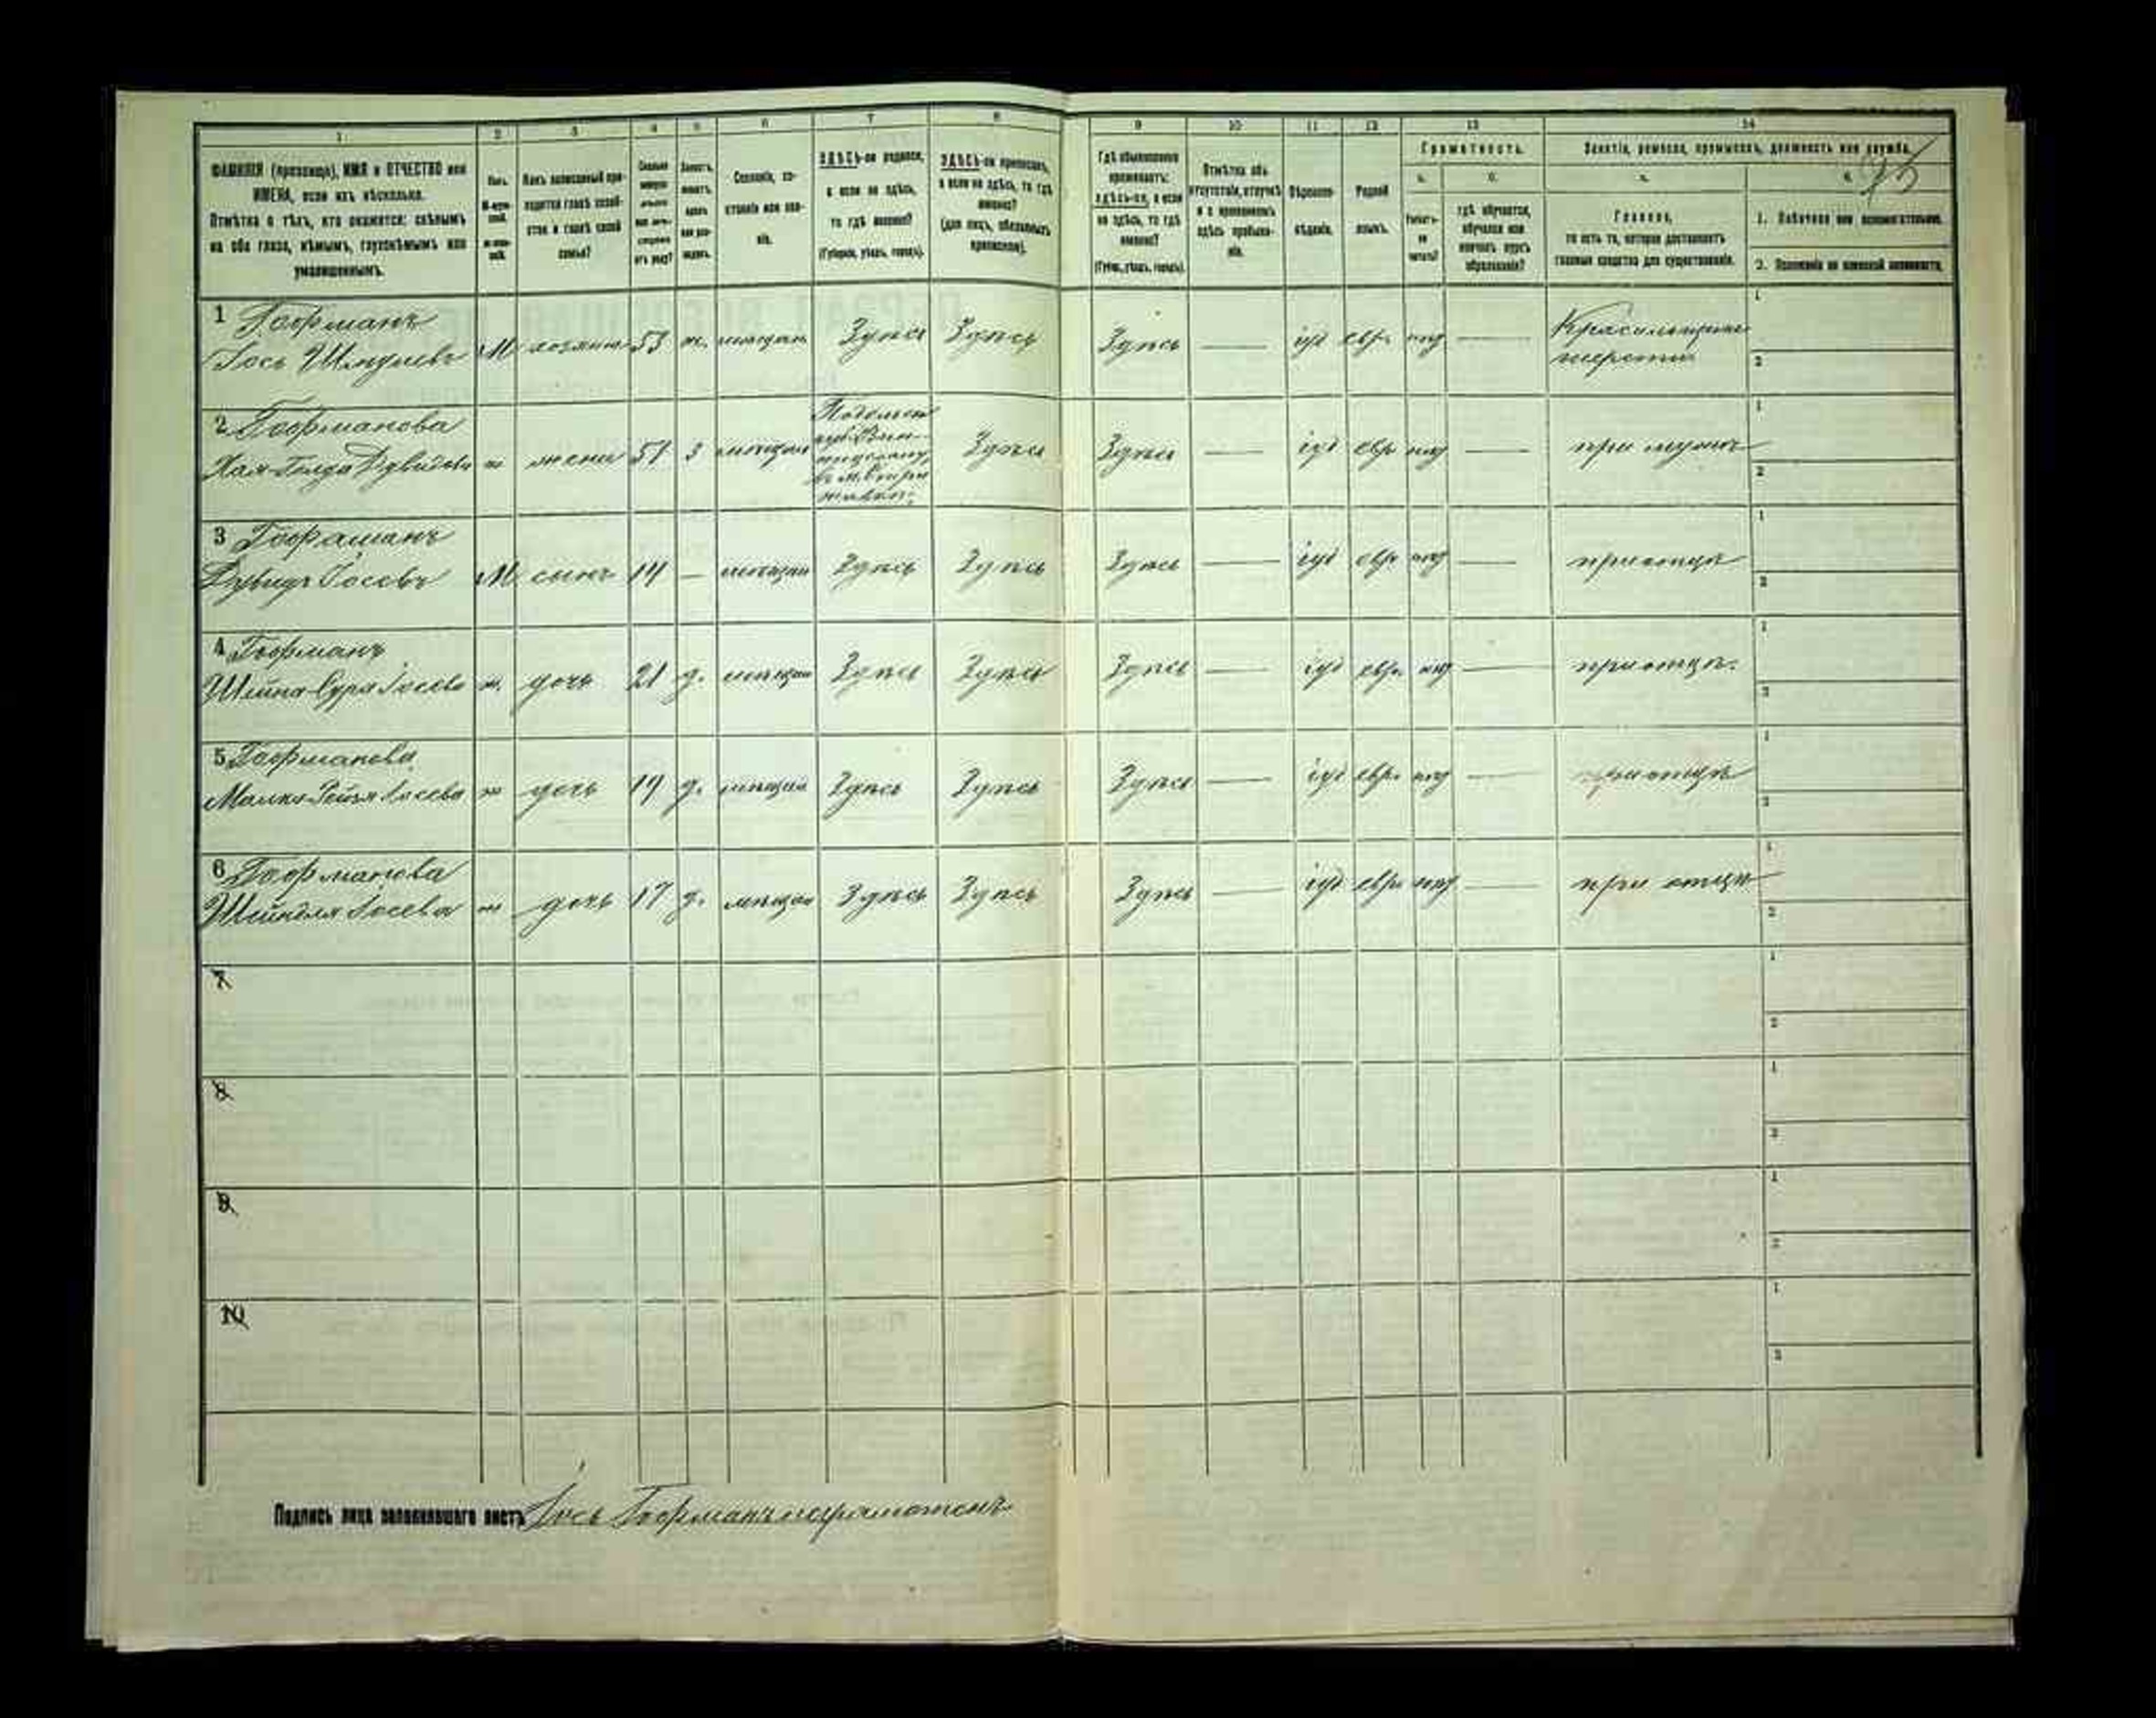 1 2 3 4 5 6 7 8 9 10 11 12 13 14
ФАМИЛІЯ (прозвище), ИМЯ и ОТЧЕСТВО или
ИМЕНА, если ихъ нѣсколько.
Отмѣтка о тѣхъ, кто окажется: слѣпымъ
на оба глаза, нѣмымъ, глухонѣмымъ или
умалишеннымъ.
Полъ.
Какъ записанный при-
ходится главѣ хозяй-
ства и главѣ своей
семьи?
Сословіе, со-
стояніе или зва-
ніе.
ЗДѢСЬ-ли родился,
а если не здѣсь,
то гдѣ именно?
(Губернія, уѣздъ, городъ).
ЗДѢСЬ-ли приписанъ,
а если не здѣсь, то гдѣ
именно?
(для лицъ, обязанныхъ
припискою).
Гдѣ обыкновенно
проживаетъ:
здѣсь-ли, а если
не здѣсь, то гдѣ
именно?
(Губ., уѣздъ, городъ).
Отмѣтка объ
отсутствіи, отлучкѣ
и о временномъ
здѣсь пребыва-
ніи.
Вѣроиспо-
вѣданіе.
Родной
языкъ.
Грамотность.
а.
Умѣетъ-
ли
читать?
б.
гдѣ обучается,
обучался или
кончилъ курсъ
образованія?
Занятіе, ремесло, промыселъ, должность или служба.
95
а.
Главное,
то есть то, которое доставляетъ
главныя средства для существованія.
1. Побочное или вспомогательное.
2. Положеніе по воинской повинности.
1 Гофманъ
Іось Шмулевъ М хозяинъ 53 ж. мѣщан Здѣсь Здѣсь Здѣсь — іуд евр. нѣт — Красильщикъ
шерсти
2 Гофманова
Хая-Голда Дувидова ж жена 51 з мѣщан Подольск
губ. Вин-
в м.
Здѣсь Здѣсь — іуд евр нѣт — при мужѣ
3 Гофманъ
Дувидъ Іосевъ М сынъ 14 — мѣщан Здѣсь Здѣсь Здѣсь — іуд евр нѣт — при отцѣ
4 Гофманъ
Шейна-Сура Іосева ж. дочь 21 д. мѣщан Здѣсь Здѣсь Здѣсь — іуд евр. нѣт — при отцѣ.
5 Гофманова
Малка-Рейзя Іосева ж дочь 19 д. мѣщан Здѣсь Здѣсь Здѣсь — іуд евр. нѣт — при отцѣ
6 Гофманова
Шейндля Іосева ж дочь 17 д. мѣщан Здѣсь Здѣсь Здѣсь — іуд евр нѣт — при отцѣ
7
8
9
10
Подпись лица заполнившаго листъ Іось Гофманъ неграмотенъ